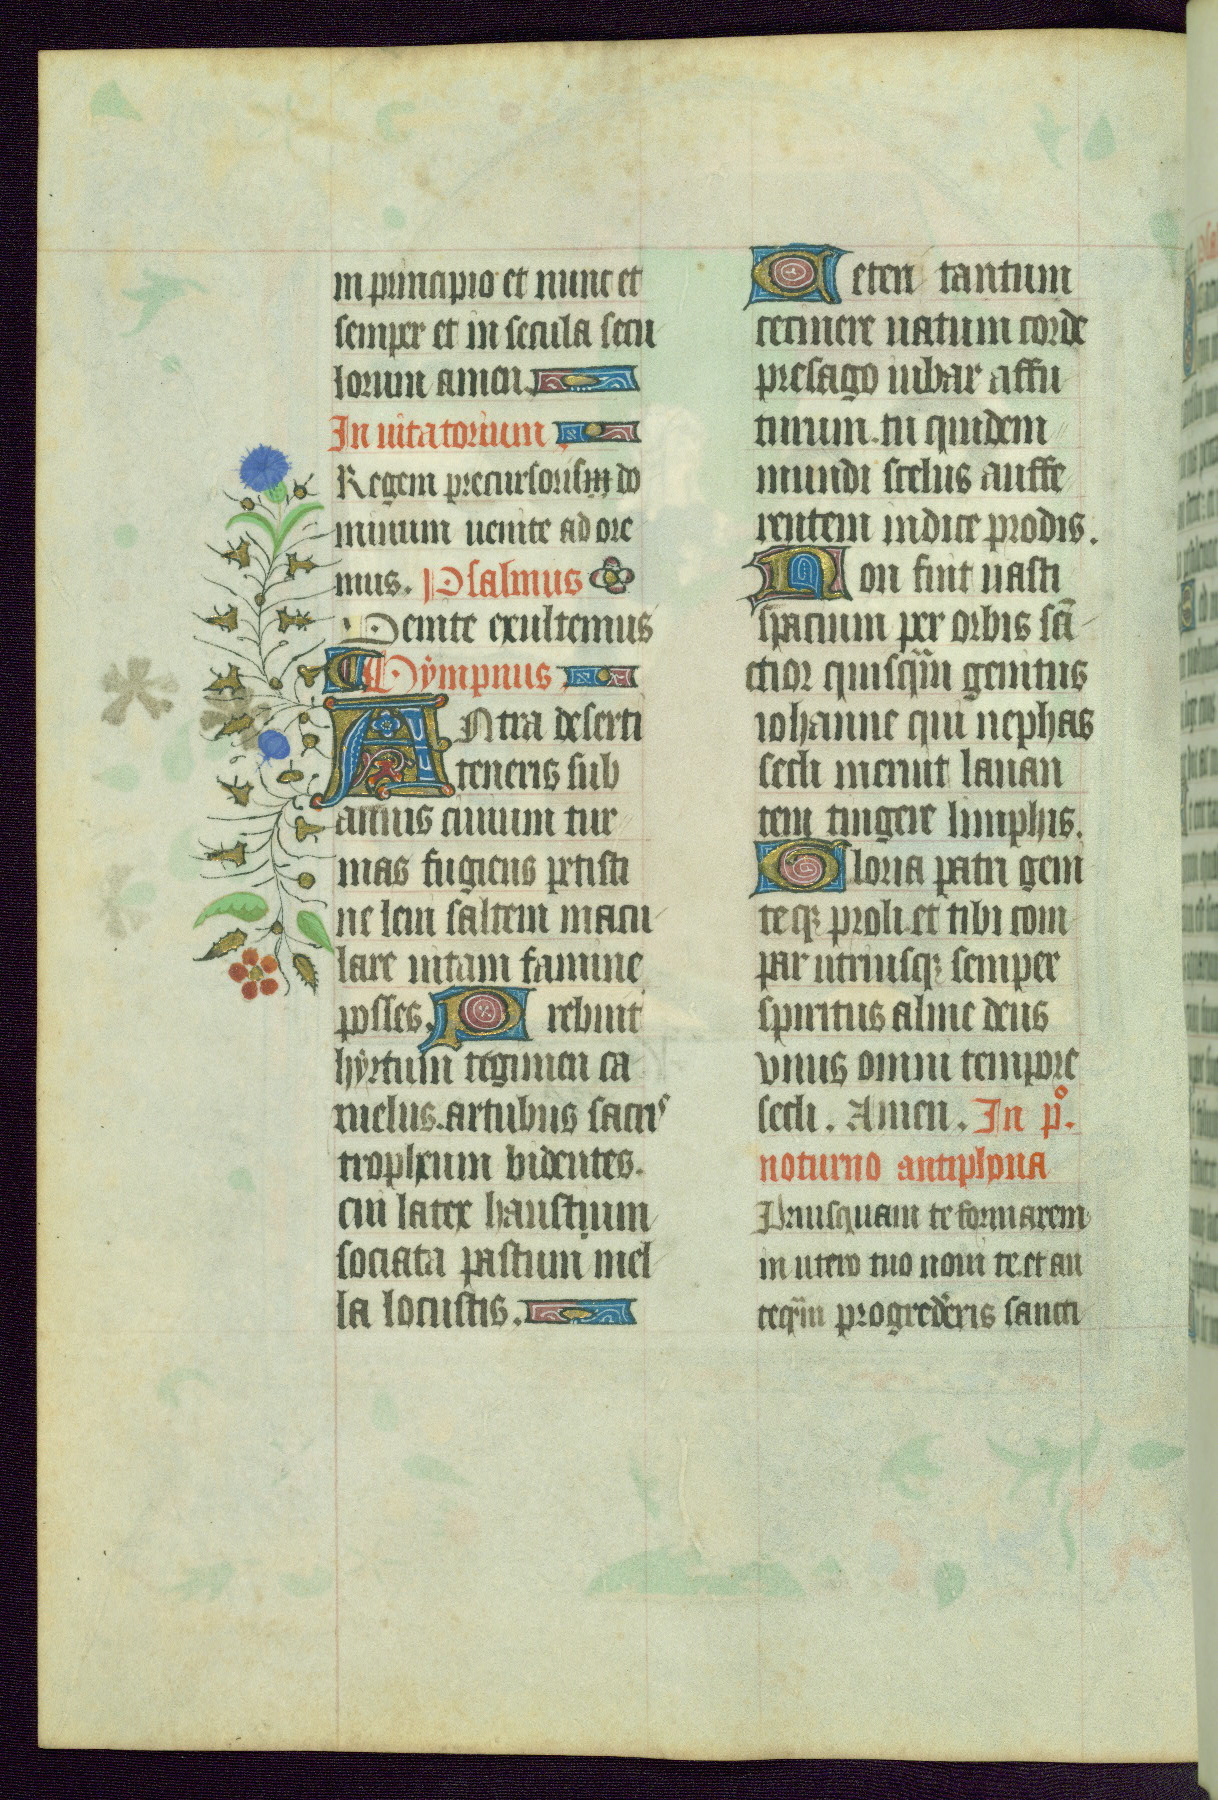 in principio et nunc et
semper et in secula secu
lorum amen.
In uitatorium
Regem precursoris do
minum uenite ad ore
mus. Psalmus
Uenite exultemus
Hÿmpnus
ANtra deserti
teneris sub
annis ciuium tur
mas fugiens petisti
ne leui saltem macu
lare uitam famine
posses. Prebuit
hÿrtum tegimen ca
melus. artubus sacris
tropheum bidentes.
cui latex haustium
sociata pastum mel
la locustis.
Ceteri tantum
cecinere uatum corde
presago iubar affu
turum. tu quidem
mundi scelus auffe
rentem indice prodis.
Non fuit uasti
spacium per orbis sā
ctior quisq̄m genitus
iohanne qui nephas
secli meruit lauan
tem tingere limphis.
Gloria patri geni
teq; proli. et tibi com
par utriusq; semper
spiritus alme deus
vnus omni tempore
secli. Amen. In pº.
noturno antiphona
Priusquam te formarem
in utero tuo noui te. et an
teq̄m progredēris sancti